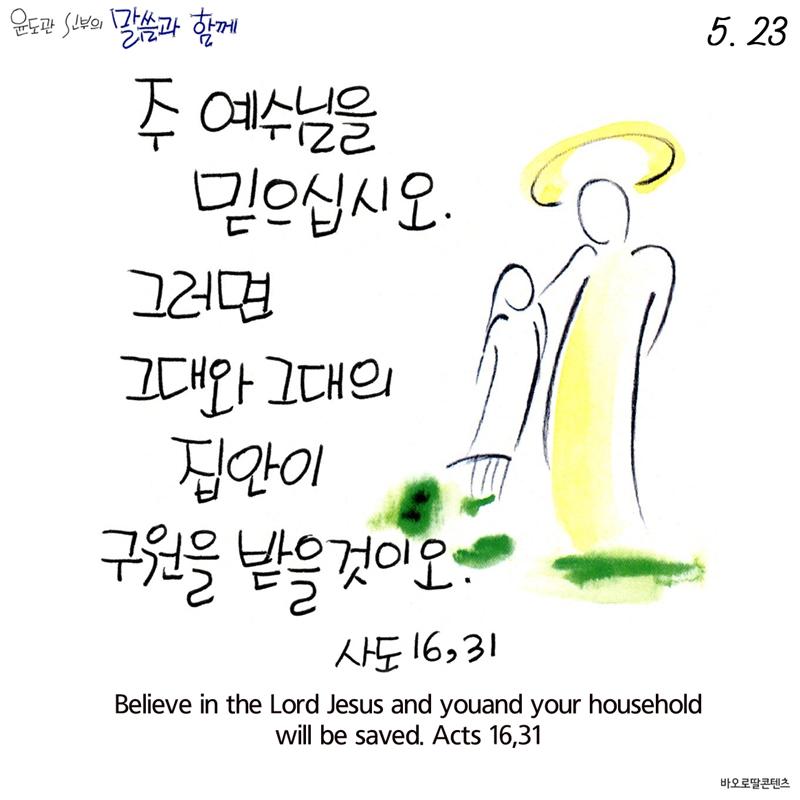 윤도관 신부의 말씀과 함께
5. 23
주 예수님을
믿으십시오.
그러면
그대와 그대의
집안이
구원을 받을것이오.
사도 16,31
Believe in the Lord Jesus and youand your household
will be saved. Acts 16,31
바오로딸콘텐츠